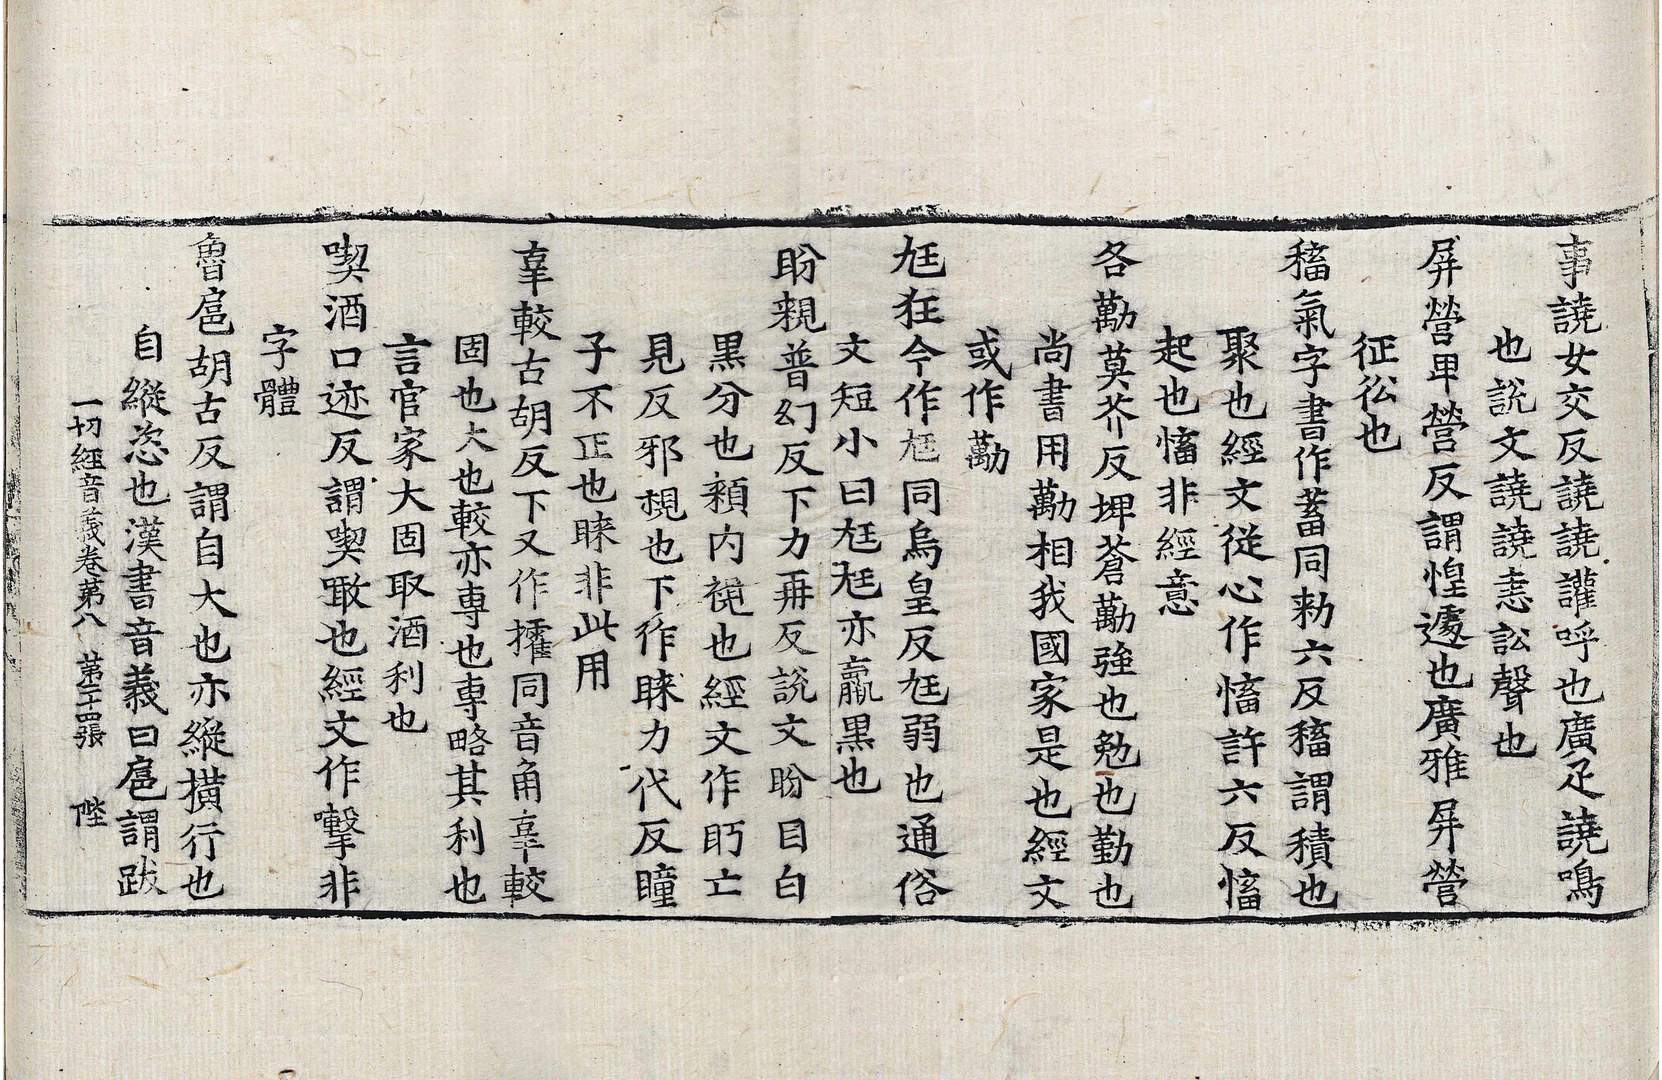 事譊女交反譊譊讙呼也廣疋譊鳴
也說文譊譊恚訟聲也
屏營卑營反謂惶遽也廣雅屏營
征彸也
稸氣字書作蓄同勑六反稸謂積也
聚也經文從心作慉許六反慉
起也慉非經意
各勱莫芥反埤蒼勱強也勉也勤也
尚書用勱相我國家是也經文
或作勸
尪狂今作尪同烏皇反尪弱也通俗
文短小曰尪尪亦羸黑也
盼親普幻反下力再反說文盼目白
黑分也頪内視也經文作眄亡
見反邪視也下作睞力代反瞳
子不正也睞非此用
辜較古胡反下又作㩁同音角辜較
固也大也較亦專也專略其利也
言官家大固取酒利也
喫酒口迹反謂喫噉也經文作㗜非
字體
魯扈胡古反謂自大也亦縱橫行也
自縱恣也漢書音義曰扈謂跋
一切經音義卷第八　第二十四張　陛